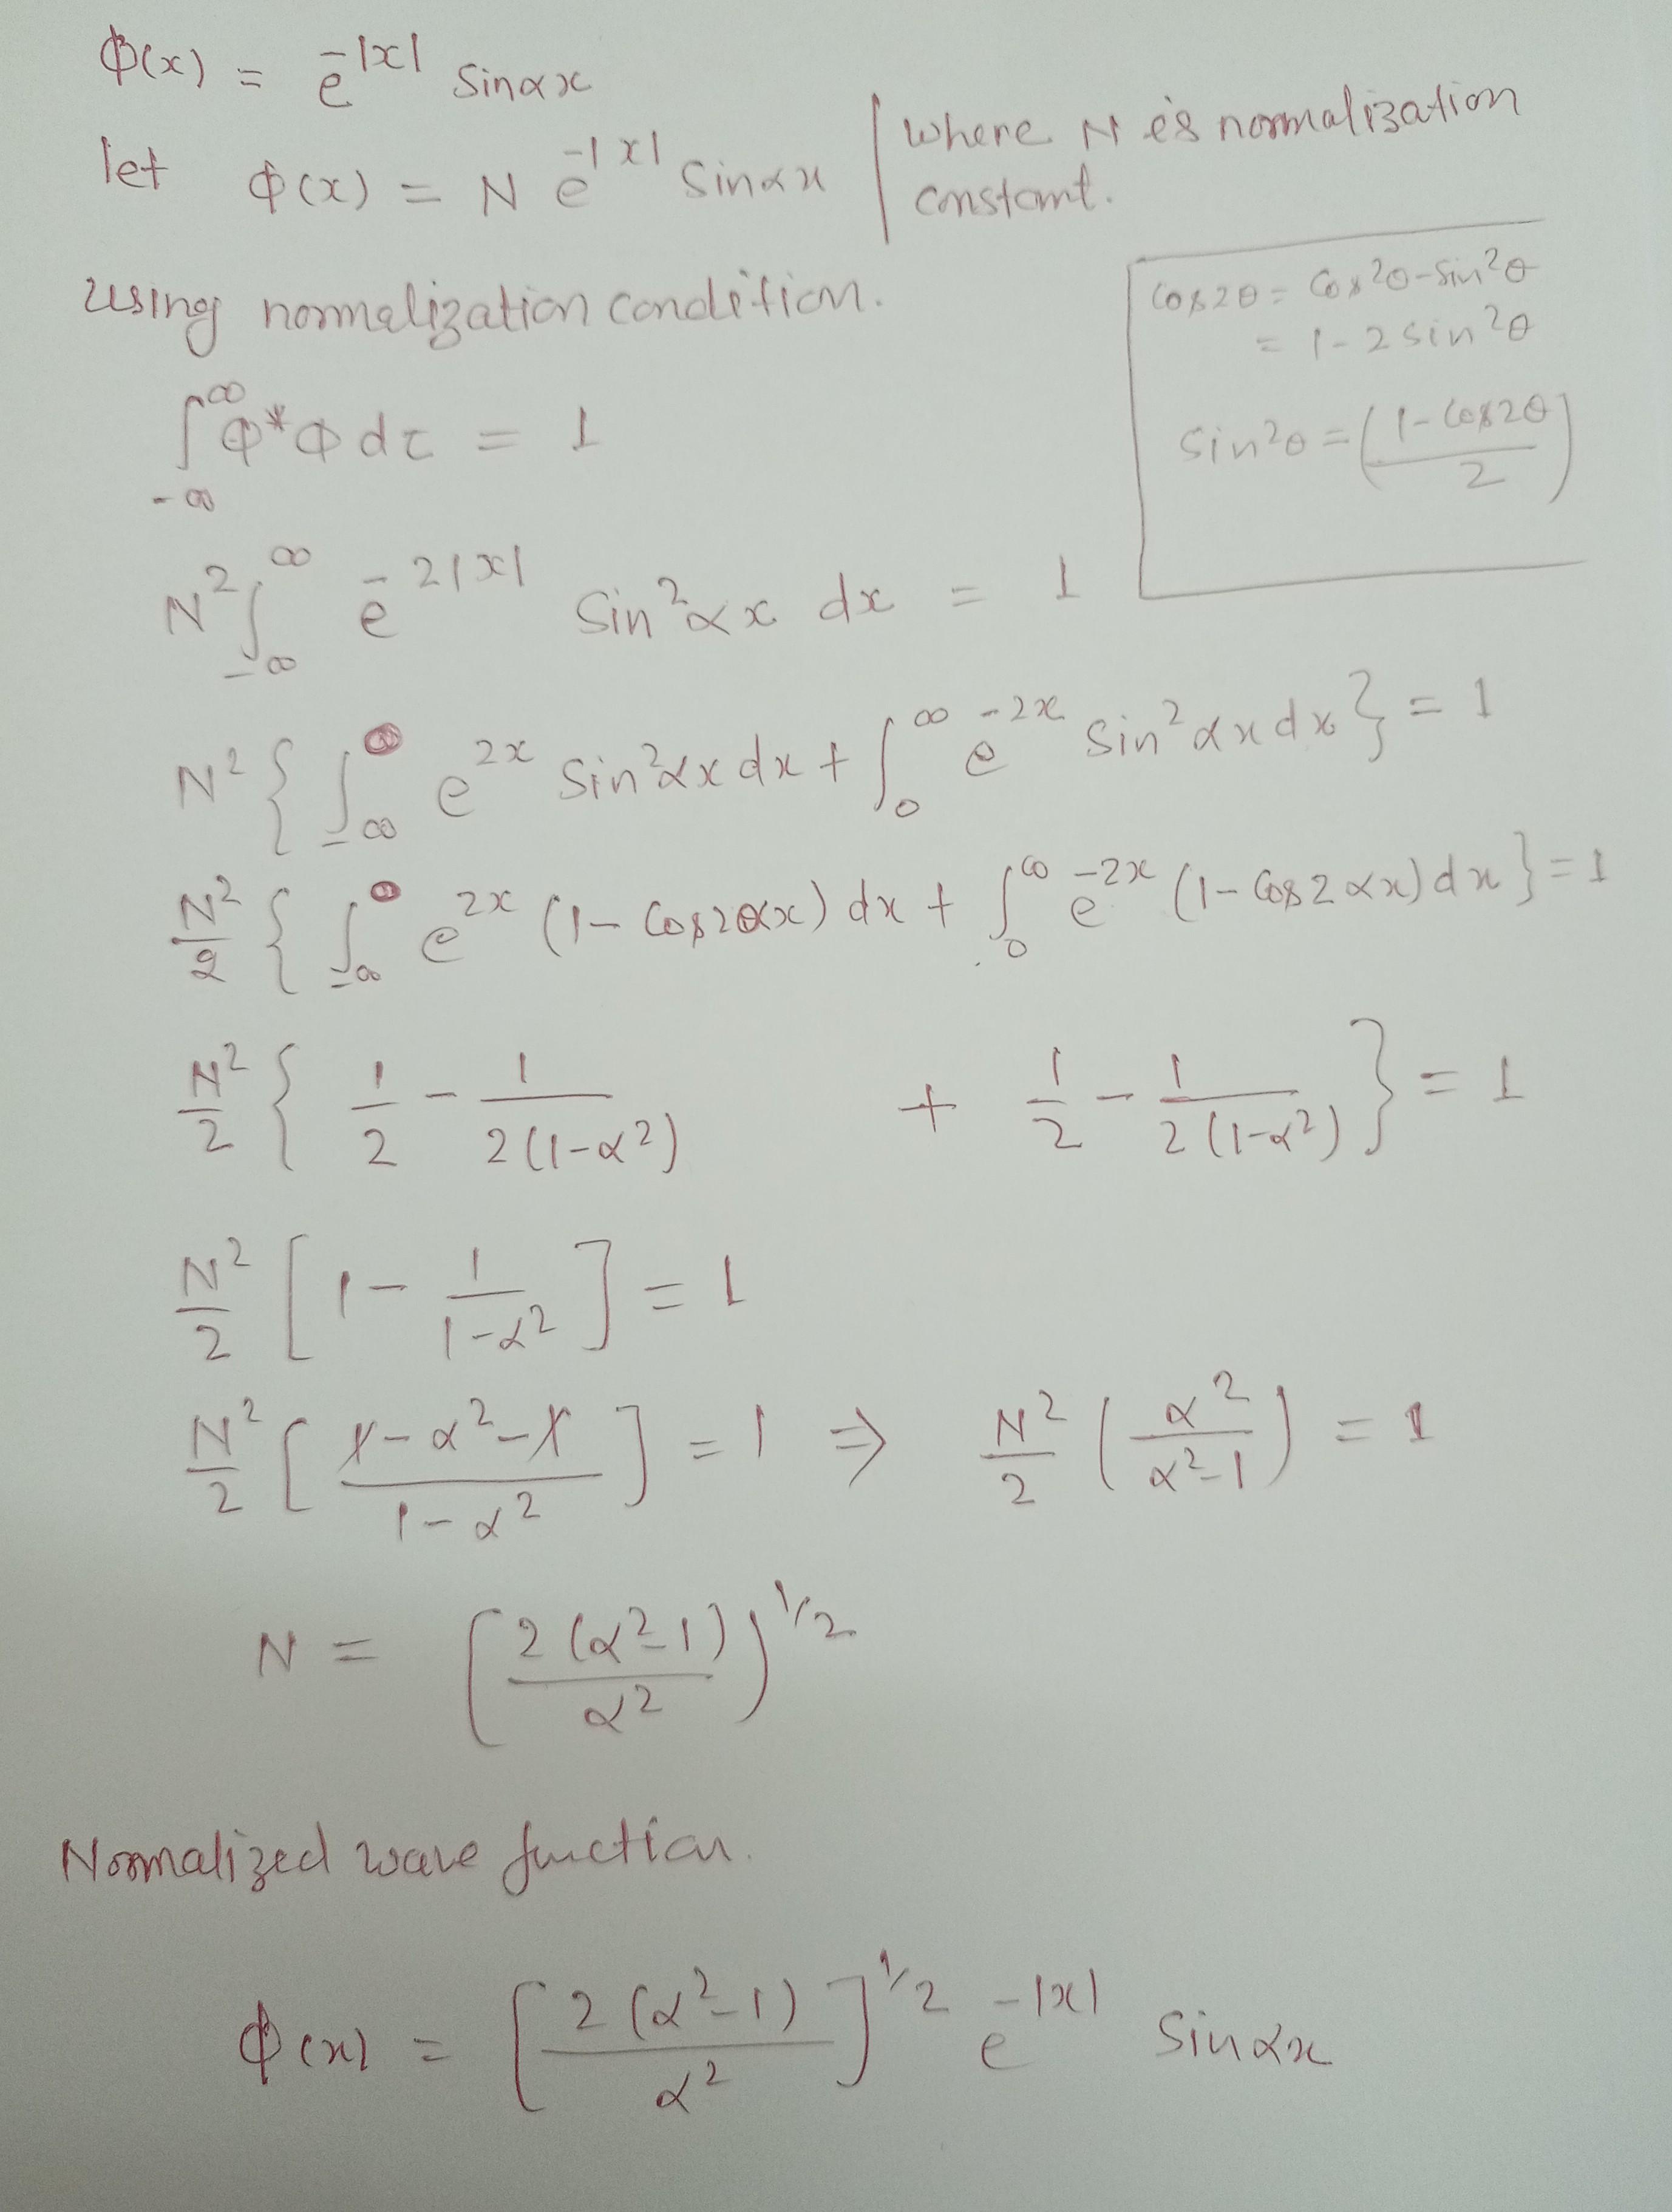 ϕ(x) = e^{-|x|} Sinαx
let ϕ(x) = N e^{-|x|} Sinαx | where N is normalization constant.
Using normalization condition.
cos2θ = Cos²θ-Sin²θ
= 1-2sin²θ
Sin²θ = ((1-Cos2θ)/2)
∫_{-∞}^{∞} ϕ*ϕ dτ = 1
N² ∫_{-∞}^{∞} e^{-2|x|} Sin²αx dx = 1
N² { ∫_{-∞}^{0} e^{2x} Sin²αx dx + ∫_0^{∞} e^{-2x} Sin²αx dx } = 1
N²/2 { ∫_{-∞}^{0} e^{2x} (1-Cos2αx) dx + ∫_0^{∞} e^{-2x} (1-Cos2αx) dx } = 1
N²/2 { 1/2 - 1/(2(1-α²)) + 1/2 - 1/(2(1-α²)) } = 1
N²/2 [ 1 - 1/(1-α²) ] = 1
N²/2 [ (1-α²-1)/(1-α²) ] = 1 ⇒ N²/2 ( α²/(α²-1) ) = 1
N = [ 2(α²-1)/α² ]^{1/2}
Normalized wave function.
ϕ(x) = [ 2(α²-1)/α² ]^{1/2} e^{-|x|} Sinαx